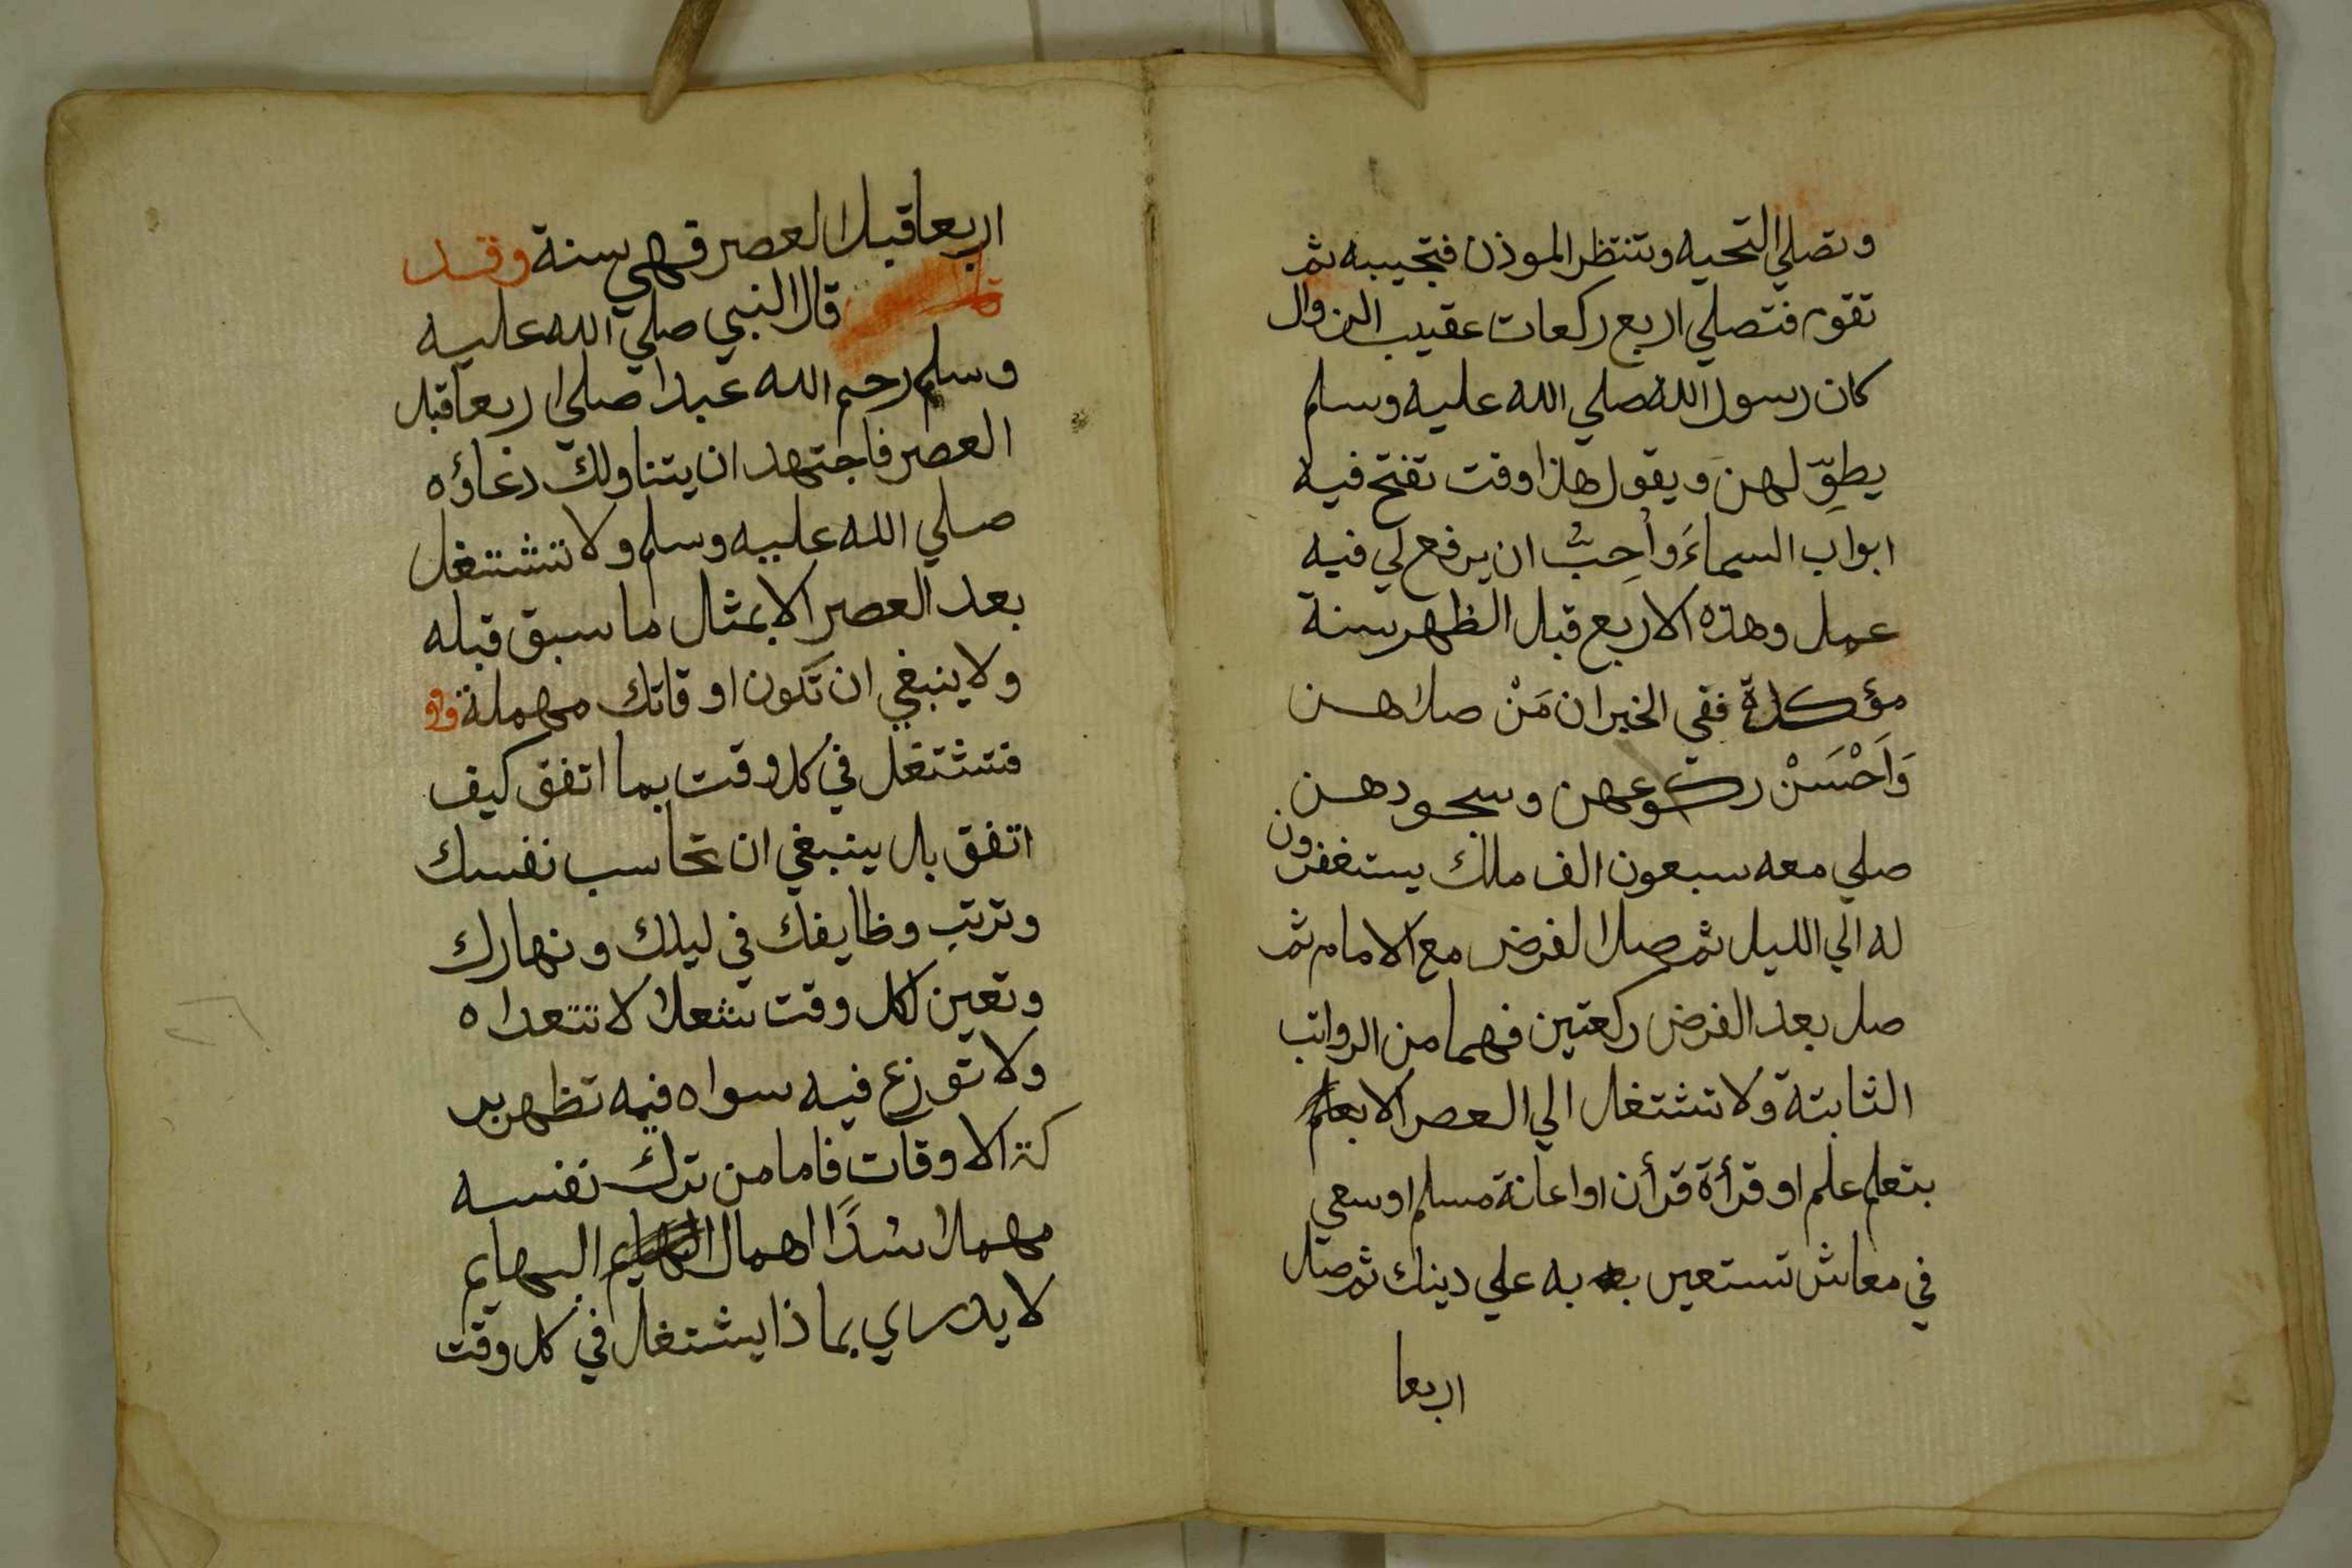 وتصلي التحيه وتنتظر الموذن فتجيبه ثم
تقوم فتصلي اربع ركعات عقيب الزوال
كان رسول الله صلي الله عليه وسلم
يطوّلهن ويقول هذا وقت تفتح فيه
ابواب السماءَ وأحِبُّ ان يرفع لي فيه
عمل وهذه الاربع قبل الظهر سنة
مؤكدة ففي الخبر ان مَنْ صلاهن
وَاَحْسَنْ ركوعهن وسجودهن
صلي معه سبعون الف ملك يستغفرون
له الي الليل ثم صل الفرض مع الامام ثم
صل بعد الفرض ركعتين فهما من الرواتب
الثابتة ولا تشتغل الي العصر الا
بتعلم علم او قرأة قرأن او اعانة مسلم او سعي
في معاش تستعين به علي دينك ثم صل
اربعا
اربعا قبل العصر فهي سنة وقد
قال النبي صلي الله عليه
وسلم رحم الله عبدا صلي اربعا قبل
العصر فاجتهد ان يتناولك دعاؤه
صلي الله عليه وسلم ولا تشتغل
بعد العصر الا بمثال ما سبق قبله
ولا ينبغي ان تكون اوقاتك مهملة
فتشتغل في كل وقت بما اتفق كيف
اتفق بل ينبغي ان تحاسب نفسك
وترتب وظايفك في ليلك ونهارك
وتعين لكل وقت شعلا لا تتعداه
ولا توزع فيه سواه فبه تظهر بر
كة الاوقات فاما من ترك نفسه
مهملا سُدًا اهمال البهايم
لا يدري بماذا يشتغل في كل وقت